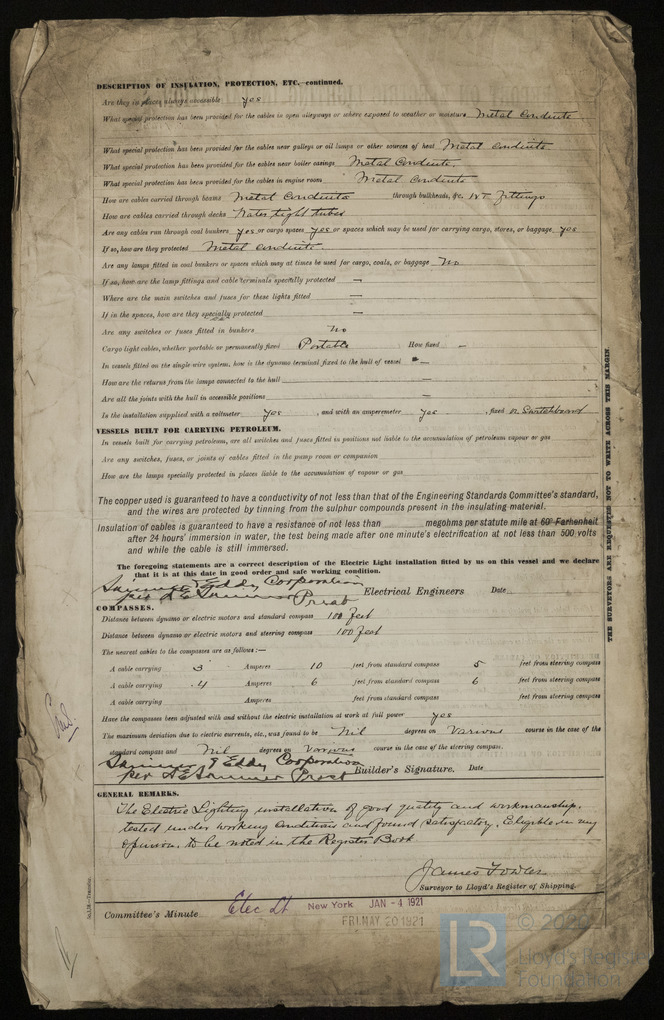 DESCRIPTION OF INSULATION, PROTECTION, ETC.—continued.
Are they in places always accessible yes
What special protection has been provided for the cables in open alleyways or where exposed to weather or moisture Metal Conduits
What special protection has been provided for the cables near galleys or oil lamps or other sources of heat Metal Conduits
What special protection has been provided for the cables near boiler casings Metal Conduits.
What special protection has been provided for the cables in engine room Metal Conduits
How are cables carried through beams Metal Conduits through bulkheads, &c. WT Fittings
How are cables carried through decks Water tight tubes
Are any cables run through coal bunkers yes or cargo spaces yes or spaces which may be used for carrying cargo, stores, or baggage yes
If so, how are they protected Metal Conduits.
Are any lamps fitted in coal bunkers or spaces which may at times be used for cargo, coals, or baggage No
If so, how are the lamp fittings and cable terminals specially protected —
Where are the main switches and fuses for these lights fitted —
If in the spaces, how are they specially protected —
Are any switches or fuses fitted in bunkers No
Cargo light cables, whether portable or permanently fixed Portable How fixed —
In vessels fitted on the single wire system, how is the dynamo terminal fixed to the hull of vessel —
How are the returns from the lamps connected to the hull —
Are all the joints with the hull in accessible positions —
Is the installation supplied with a voltmeter yes , and with an amperemeter yes , fixed on Switchboard
VESSELS BUILT FOR CARRYING PETROLEUM.
In vessels built for carrying petroleum, are all switches and fuses fitted in positions not liable to the accumulation of petroleum vapour or gas
Are any switches, fuses, or joints of cables fitted in the pump room or companion
How are the lamps specially protected in places liable to the accumulation of vapour or gas
The copper used is guaranteed to have a conductivity of not less than that of the Engineering Standards Committee's standard,
and the wires are protected by tinning from the sulphur compounds present in the insulating material.
Insulation of cables is guaranteed to have a resistance of not less than megohms per statute mile at 60° Farhenheit
after 24 hours' immersion in water, the test being made after one minute's electrification at not less than 500 volts
and while the cable is still immersed.
The foregoing statements are a correct description of the Electric Light installation fitted by us on this vessel and we declare
that it is at this date in good order and safe working condition.
Eddy Corporation
per Electrical Engineers Date
COMPASSES.
Distance between dynamo or electric motors and standard compass 100 feet
Distance between dynamo or electric motors and steering compass 100 feet
The nearest cables to the compasses are as follows:—
A cable carrying 3 Amperes 10 feet from standard compass 5 feet from steering compass
A cable carrying .4 Amperes 6 feet from standard compass 6 feet from steering compass
A cable carrying Amperes feet from standard compass feet from steering compass
Have the compasses been adjusted with and without the electric installation at work at full power yes
The maximum deviation due to electric currents, etc., was found to be Nil degrees on Various course in the case of the
standard compass and Nil degrees on Various course in the case of the steering compass.
Eddy Corporation
per Builder's Signature. Date
GENERAL REMARKS.
The Electric Lighting installation of good quality and workmanship,
tested under working conditions and found satisfactory. Eligible in my
opinion, to be noted in the Register Book
James Fowler
Surveyor to Lloyd's Register of Shipping.
Committee's Minute Elec Lt New York JAN - 4 1921
FRI. MAY 20 1921
THE SURVEYORS ARE REQUESTED NOT TO WRITE ACROSS THIS MARGIN
LR
© 2020
Lloyd's Register
Foundation